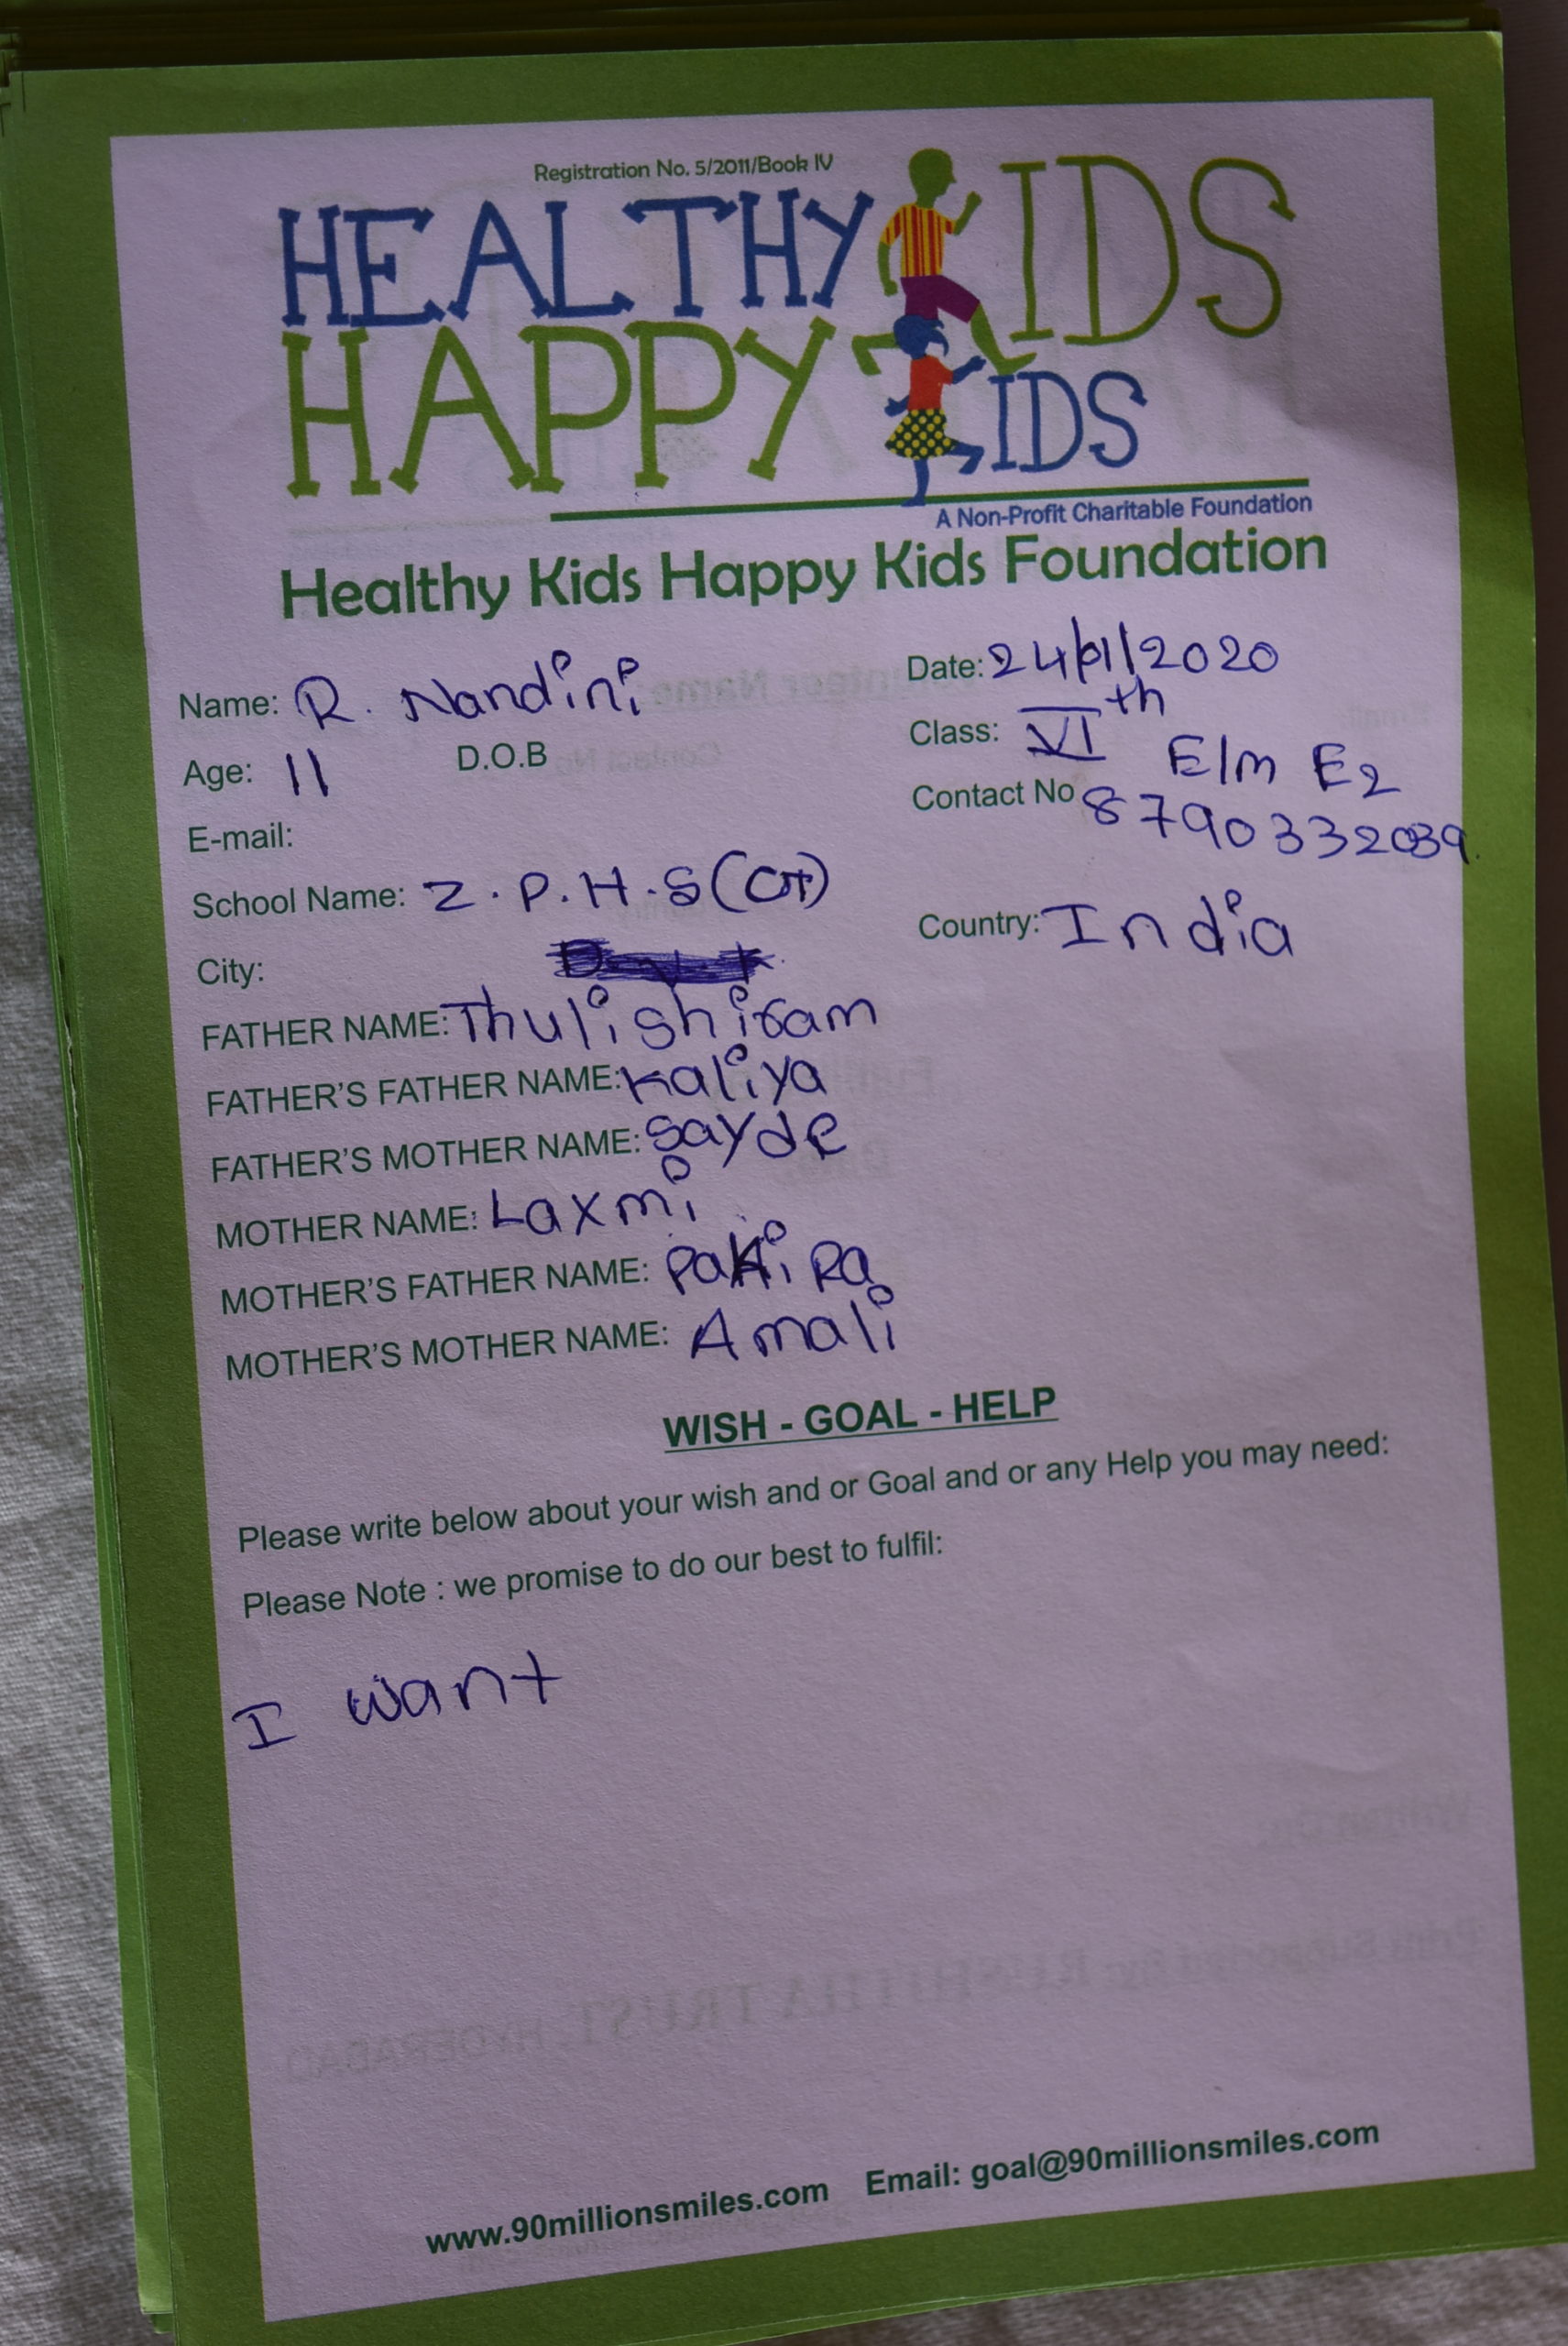 Registration No. 5/2011/Book IV
HEALTHY KIDS
HAPPY KIDS
A Non-Profit Charitable Foundation
Healthy Kids Happy Kids Foundation
Name: R. Nandini Date: 24/01/2020
Age: 11 D.O.B Class: VIth Elm E2
E-mail: Contact No 8790332039.
School Name: Z.P.H.S (OT)
City: Country: India
FATHER NAME: Thulighiram
FATHER'S FATHER NAME: Kaliya
FATHER'S MOTHER NAME: Sayde
MOTHER NAME: Laxmi
MOTHER'S FATHER NAME: PaKiRa
MOTHER'S MOTHER NAME: Amali
WISH - GOAL - HELP
Please write below about your wish and or Goal and or any Help you may need:
Please Note : we promise to do our best to fulfil:
I want
www.90millionsmiles.com Email: goal@90millionsmiles.com